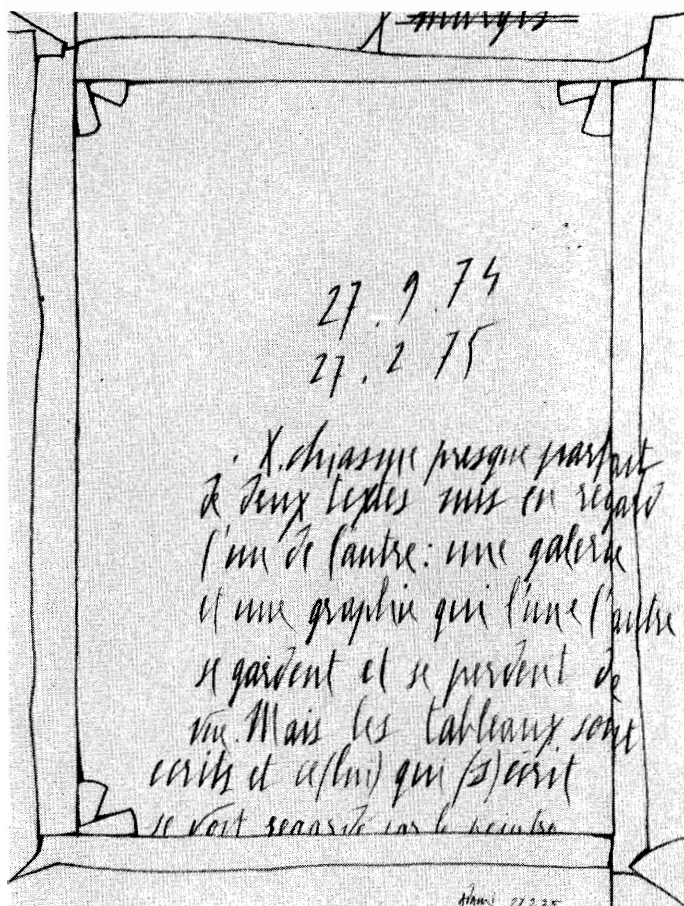 X
27.9.74
27.2.75
X. chiasme presque parfait
de deux textes mis en regard
l'un de l'autre : une galerie
et une graphie qui l'une l'autre
se gardent et se perdent de
vue. Mais les tableaux sont
écrits et ce(lui) qui (s)écrit
se voit regardé par le peintre
Adami 27.2.75